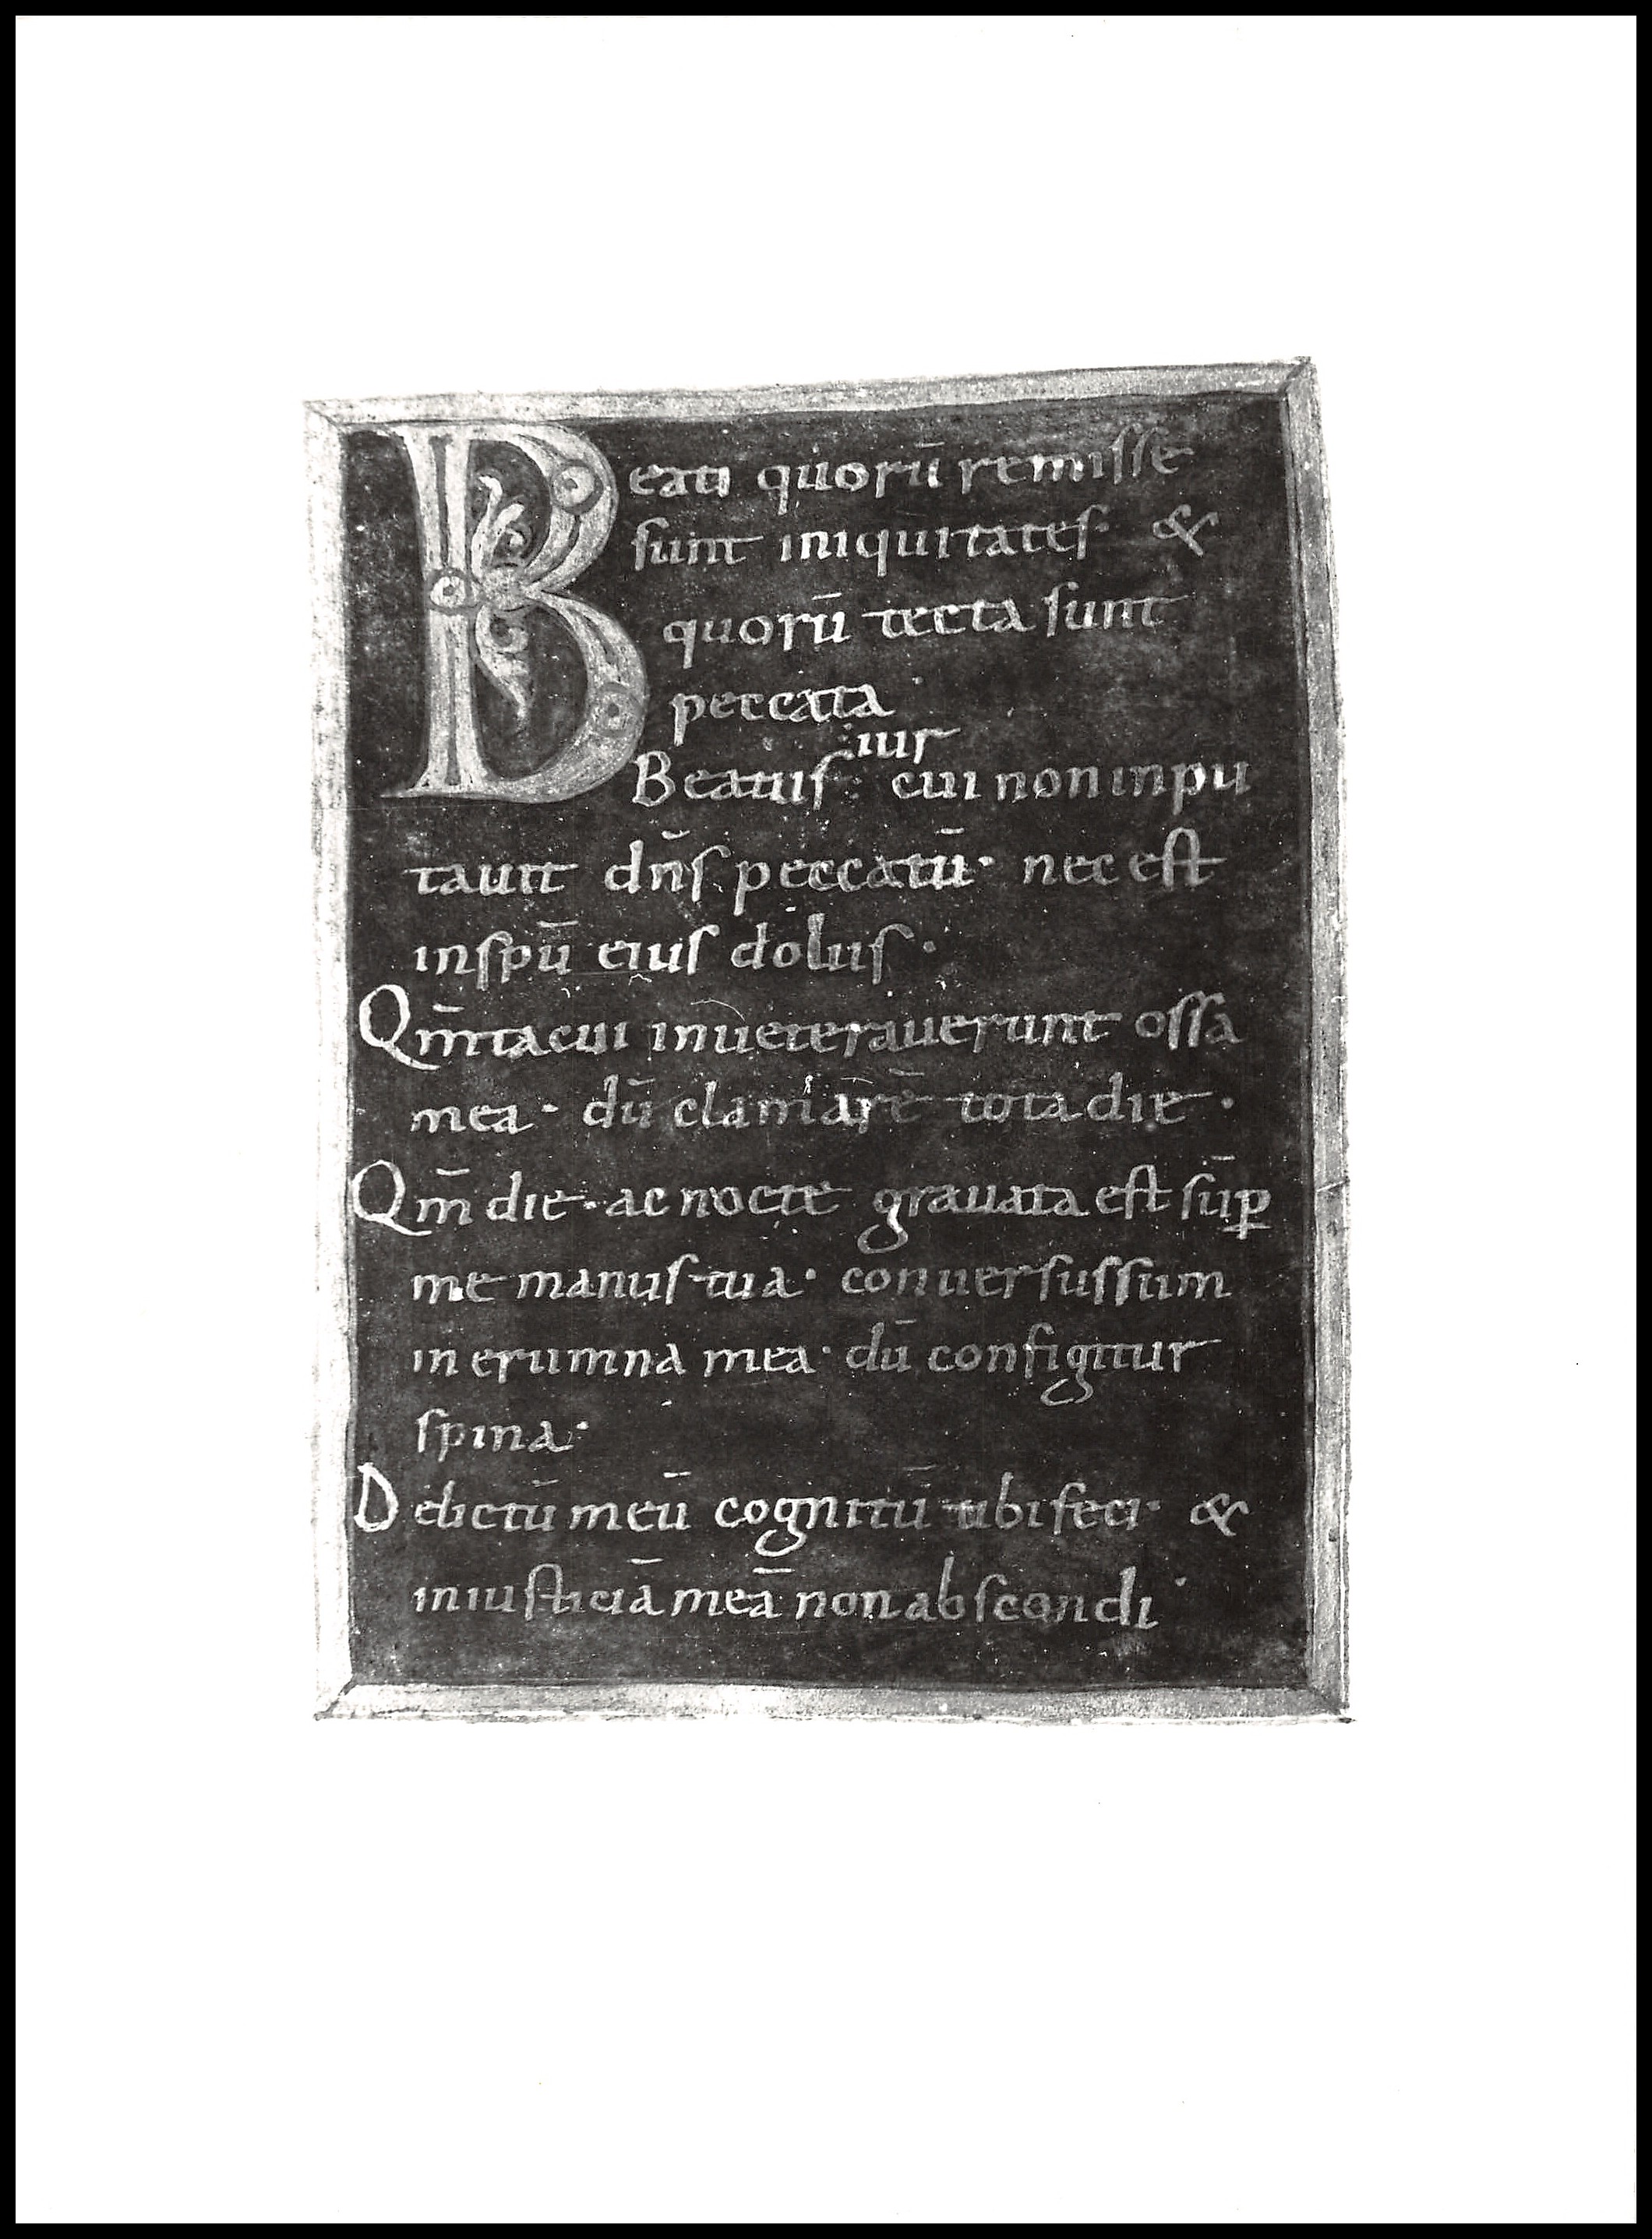 Beati quorū remisse
sunt iniquitates· &
quorū tecta sunt
peccata·
uir
Beatus cui non inpu
tauit dn̄s peccatū· nec est
in spū eius dolus·
Qm̄ tacui inueterauerunt ossa
mea· dū clamarē tota die·
Qm̄ die· ac nocte grauata est sup̄
me manus tua· conuersus sum
in erumna mea· dū configitur
spina·
Delictū meū cognitū tibi feci· &
iniusticiā meā non abscondi·